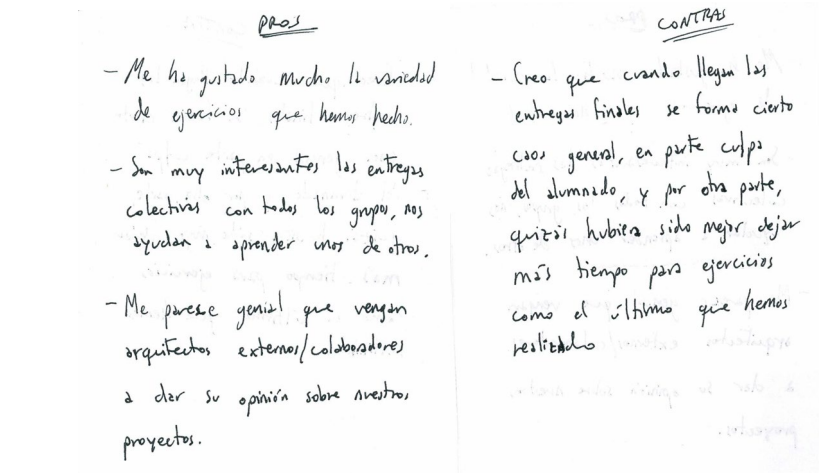 PROS
- Me ha gustado mucho la variedad
de ejercicios que hemos hecho.
- Son muy interesantes las entregas
colectivas con todos los grupos, nos
ayudan a aprender unos de otros.
- Me parece genial que vengan
arquitectos externos/colaboradores
a dar su opinión sobre nuestros
proyectos.
CONTRAS
- Creo que cuando llegan las
entregas finales se forma cierto
caos general, en parte culpa
del alumnado, y por otra parte,
quizás hubiera sido mejor dejar
más tiempo para ejercicios
como el último que hemos
realizado